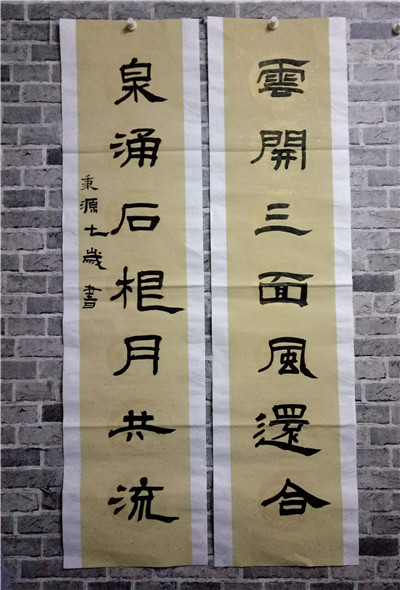 雲開三面風還合
泉涌石根月共流
秉源七歲書